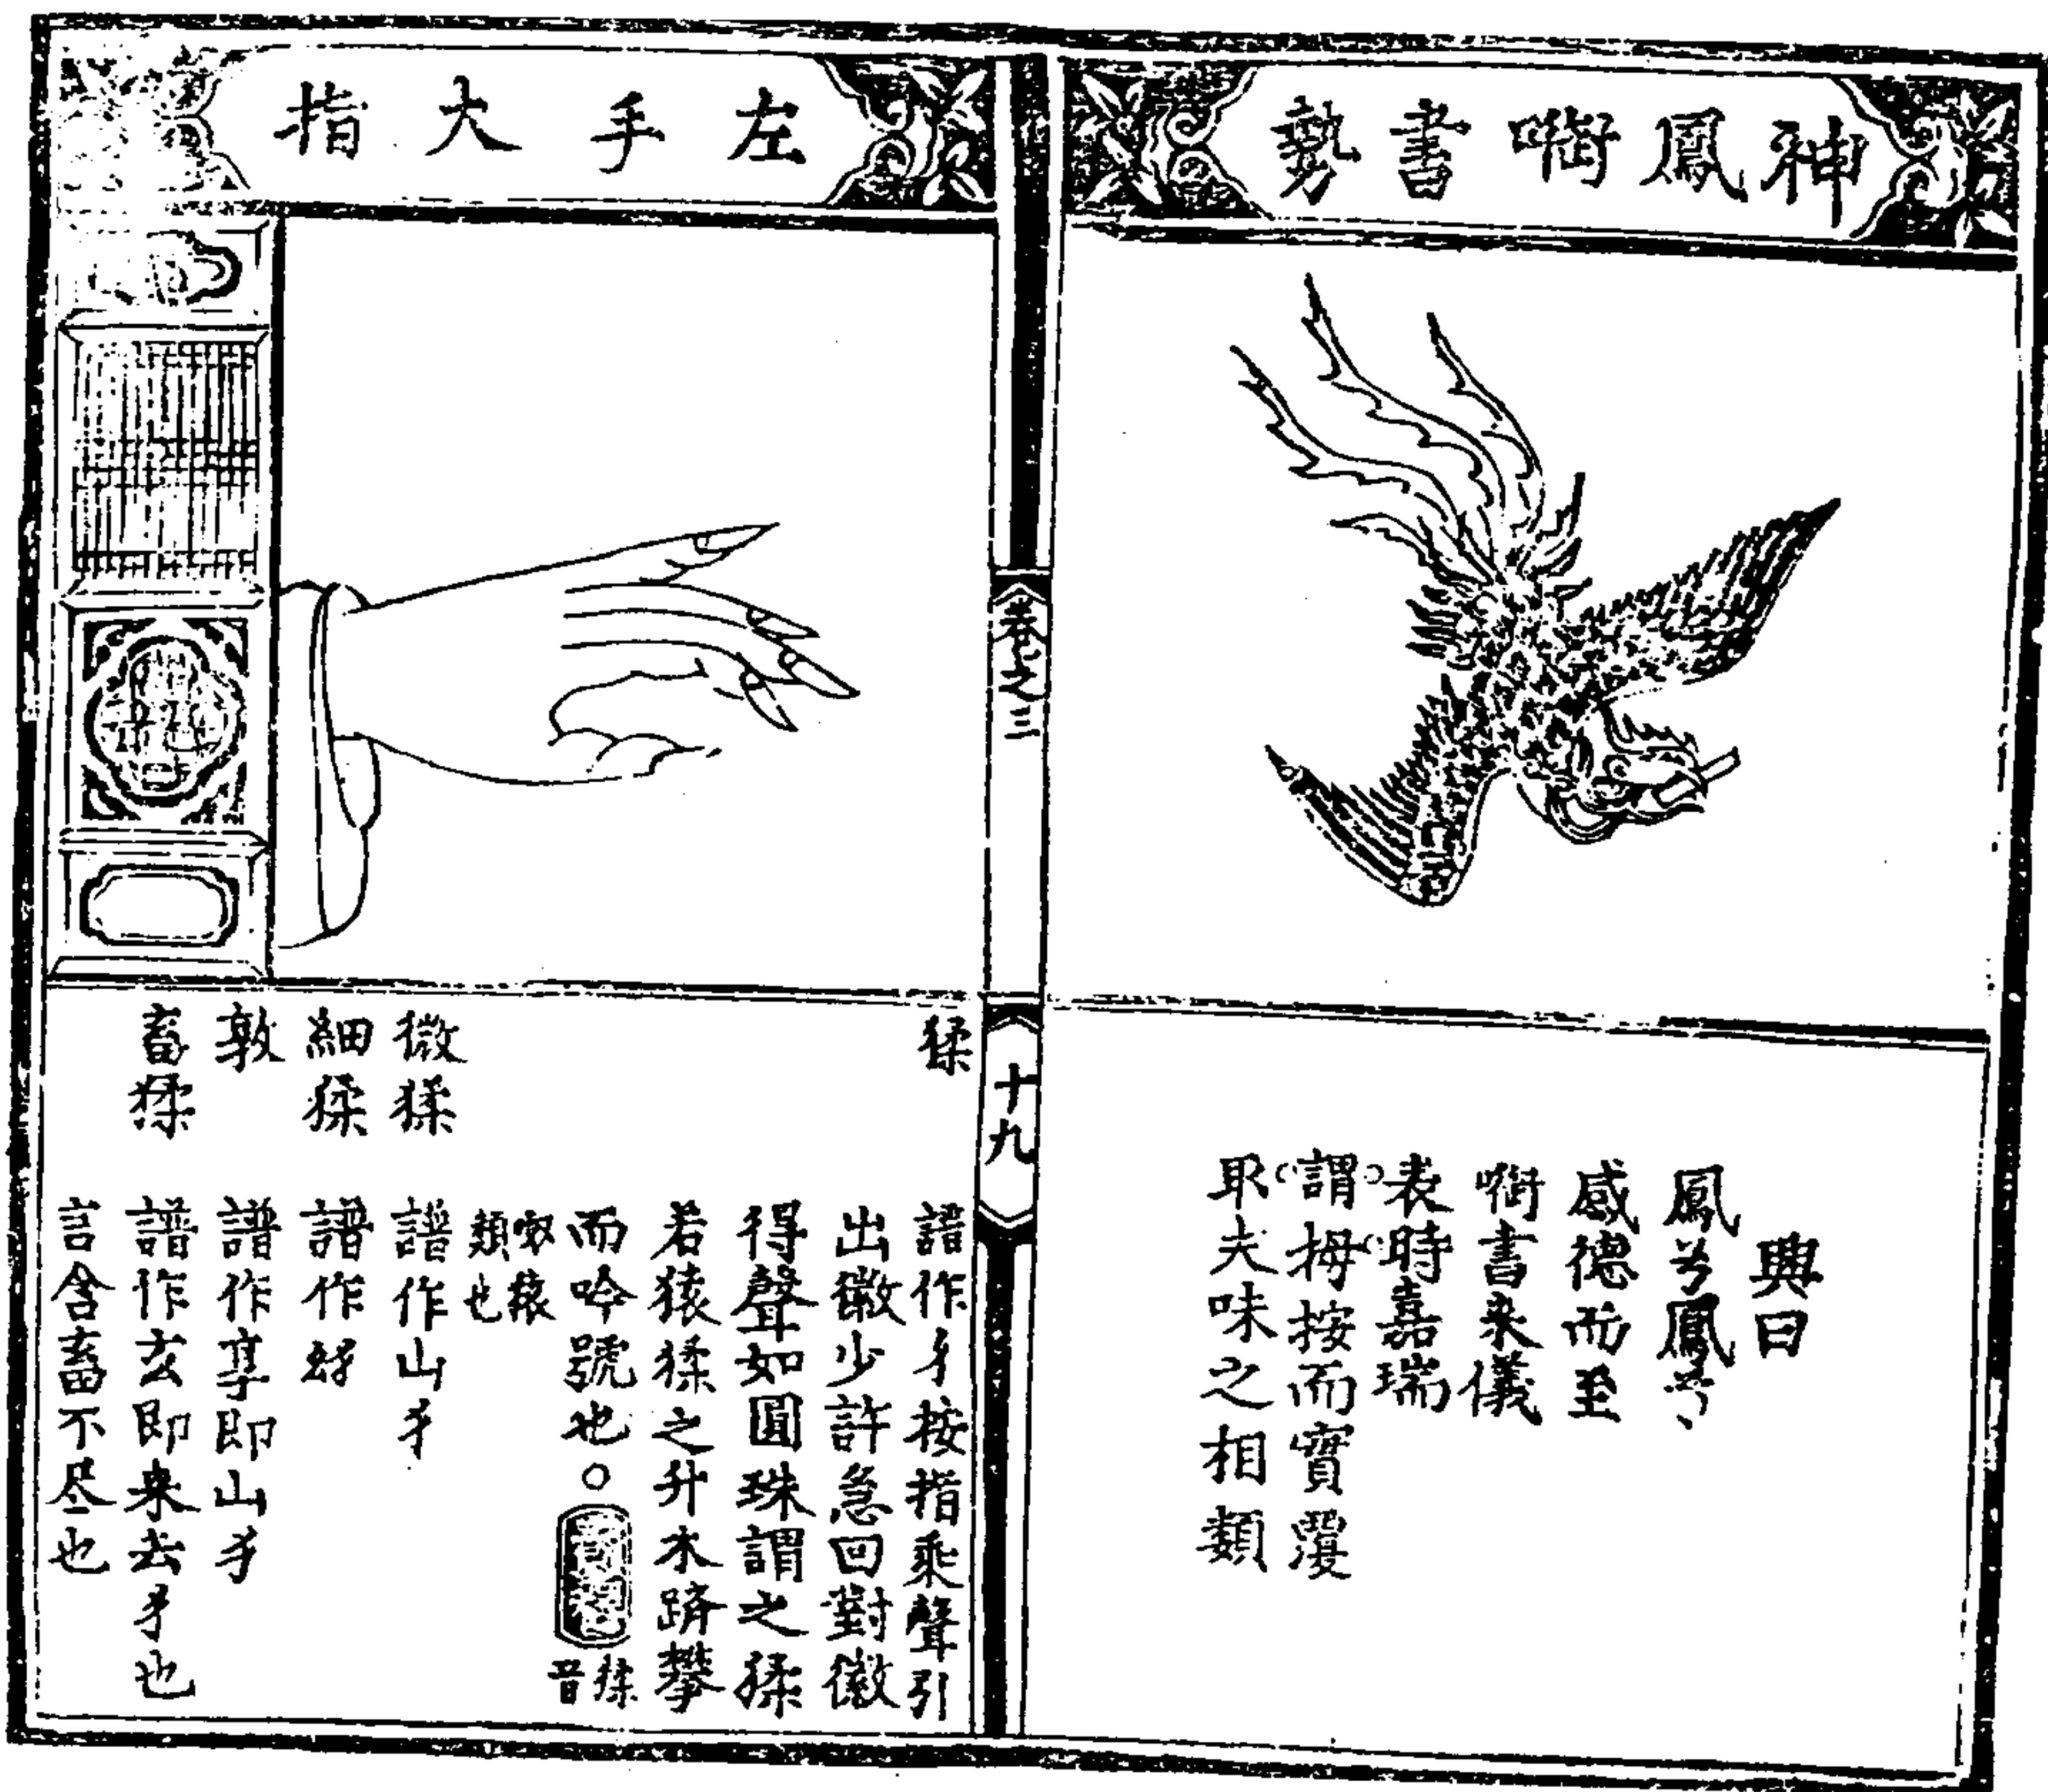 神鳳啣書勢
興曰
鳳兮鳳兮
感德而至
啣書来儀
表時嘉瑞
謂拇按而實覆
取夫味之相類
卷之三
十九
左手大指
猱
譜作犭按指乘聲引
出徽少許急回對徽
得聲如圓珠謂之猱
若猿猱之升木躋攀
而吟號也○
猱音
猿
類也
微猱
譜作山犭
細猱
譜作
敦
譜作享即山犭
畜猱
譜作玄即来去犭也
言含畜不尽也